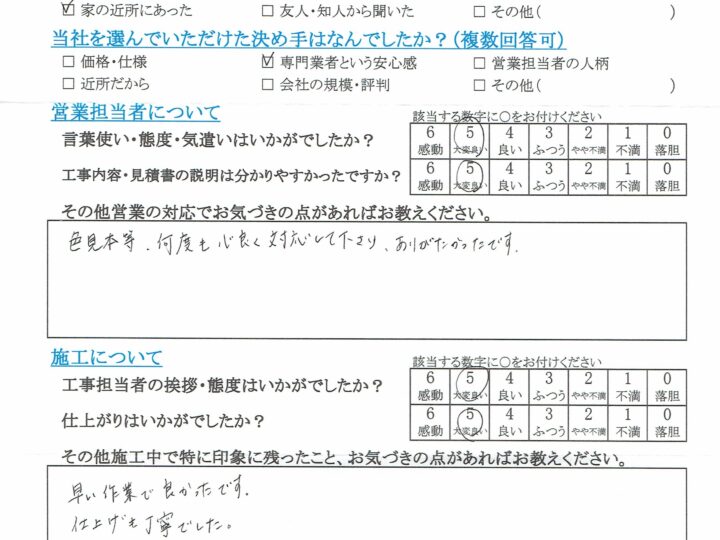 ☑ 家の近所にあった □ 友人・知人から聞いた □ その他( )
当社を選んでいただけた決め手はなんでしたか？(複数回答可)
□ 価格・仕様 ☑ 専門業者という安心感 □ 営業担当者の人柄
□ 近所だから □ 会社の規模・評判 □ その他( )
営業担当者について 該当する数字に○をお付けください
言葉使い・態度・気遣いはいかがでしたか？ 6 5 4 3 2 1 0
感動 大変良い 良い ふつう やや不満 不満 落胆
工事内容・見積書の説明は分かりやすかったですか？ 6 5 4 3 2 1 0
感動 大変良い 良い ふつう やや不満 不満 落胆
その他営業の対応でお気づきの点があればお教えください。
色見本等、何度も心良く対応して下さり、ありがたかったです.
施工について 該当する数字に○をお付けください
工事担当者の挨拶・態度はいかがでしたか？ 6 5 4 3 2 1 0
感動 大変良い 良い ふつう やや不満 不満 落胆
仕上がりはいかがでしたか？ 6 5 4 3 2 1 0
感動 大変良い 良い ふつう やや不満 不満 落胆
その他施工中で特に印象に残ったこと、お気づきの点があればお教えください。
早い作業で良かったです.
仕上げも丁寧でした。